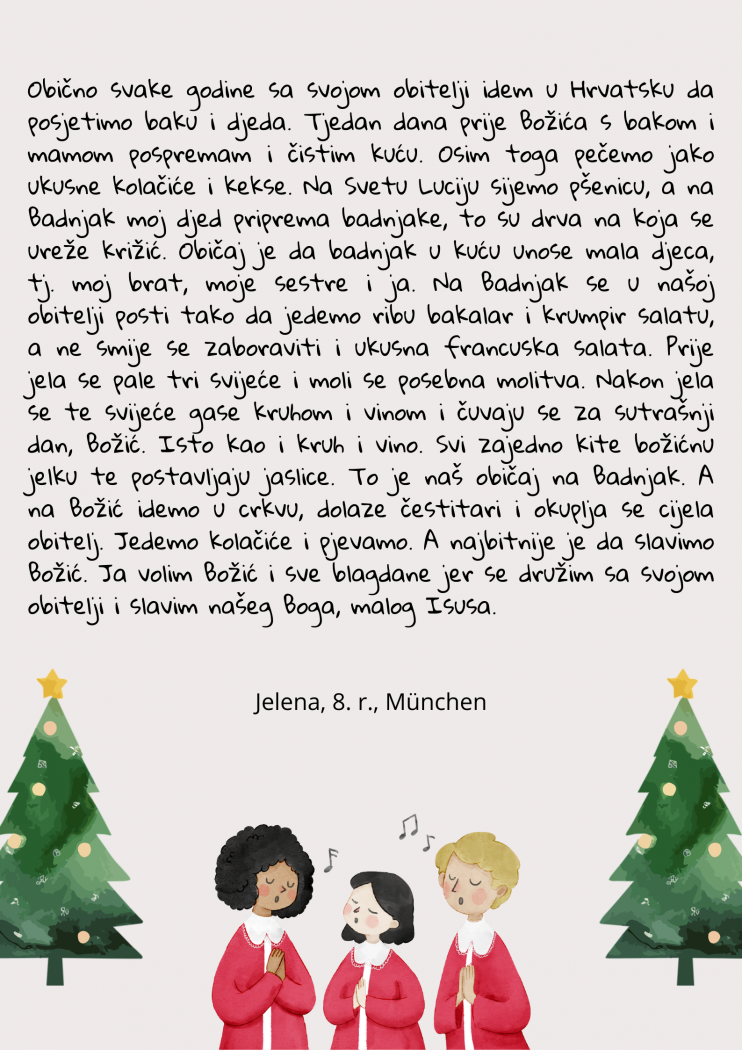 Obično svake godine sa svojom obitelji idem u Hrvatsku da
posjetimo baku i djeda. Tjedan dana prije Božića s bakom i
mamom pospremam i čistim kuću. Osim toga pečemo jako
ukusne kolačiće i kekse. Na Svetu Luciju sijemo pšenicu, a na
Badnjak moj djed priprema badnjake, to su drva na koja se
ureže križić. Običaj je da badnjak u kuću unose mala djeca,
tj. moj brat, moje sestre i ja. Na Badnjak se u našoj
obitelji posti tako da jedemo ribu bakalar i krumpir salatu,
a ne smije se zaboraviti i ukusna francuska salata. Prije
jela se pale tri svijeće i moli se posebna molitva. Nakon jela
se te svijeće gase kruhom i vinom i čuvaju se za sutrašnji
dan, Božić. Isto kao i kruh i vino. Svi zajedno kite božićnu
jelku te postavljaju jaslice. To je naš običaj na Badnjak. A
na Božić idemo u crkvu, dolaze čestitari i okuplja se cijela
obitelj. Jedemo kolačiće i pjevamo. A najbitnije je da slavimo
Božić. Ja volim Božić i sve blagdane jer se družim sa svojom
obitelji i slavim našeg Boga, malog Isusa.
Jelena, 8. r., München